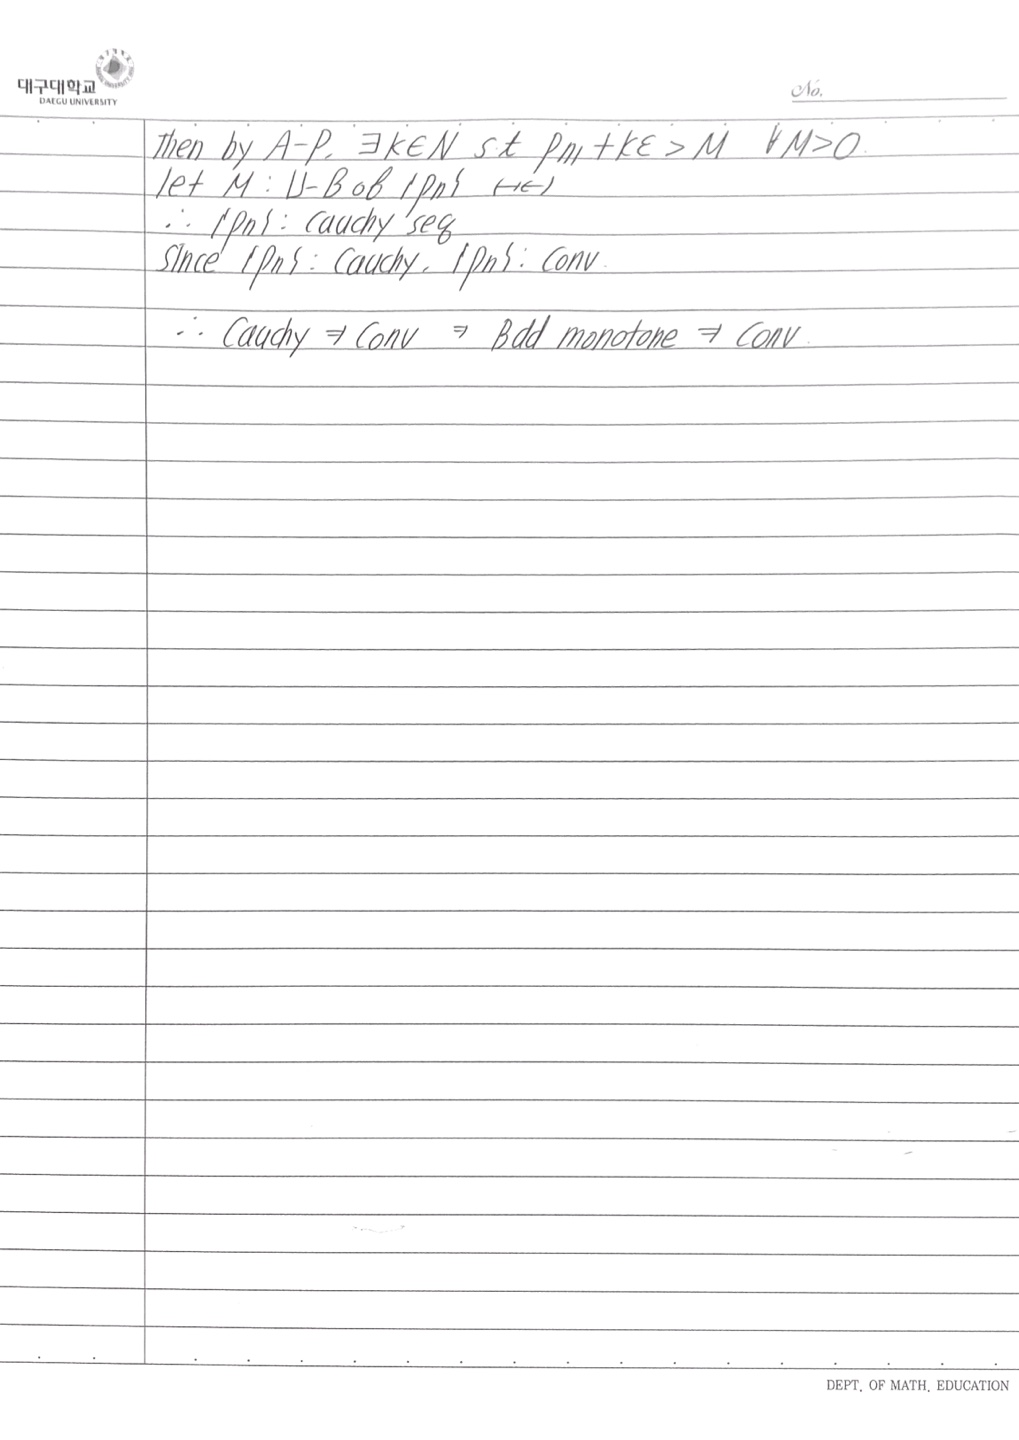 대구대학교
DAEGU UNIVERSITY
No.
Then by A-P. ∃K∈N s.t Pn₁+Kε>M ∀M>0.
let M : U-B of {Pn} (→←)
∴ {Pn} : Cauchy seq
Since {Pn} : Cauchy, {Pn} : Conv.
∴ Cauchy ⇒ Conv ⇒ Bdd monotone ⇒ Conv.
DEPT. OF MATH. EDUCATION